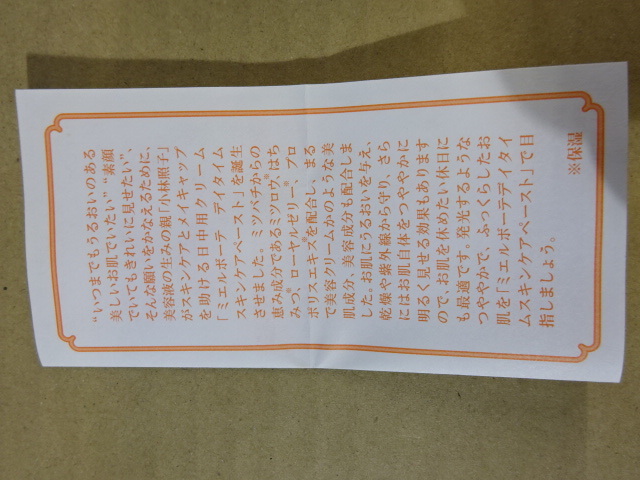 “いつまでもうるおいのある
美しいお肌でいたい”“素顔
でいてもきれいに見せたい”、
そんな願いをかなえるために、
美容液の生みの親「小林照子」
がスキンケアとメイキャップ
を助ける日中用クリーム
「ミエルボーテ デイタイム
スキンケアペースト」を誕生
させました。ミツバチからの
恵み成分であるミツロウ※、はち
みつ※、ローヤルゼリー※、プロ
ポリスエキス※を配合し、まる
で美容クリームかのような美
肌成分、美容成分も配合しま
した。お肌にうるおいを与え、
乾燥や紫外線から守り、さら
にはお肌自体をつややかに
明るく見せる効果もあります
ので、お肌を休めたい休日に
も最適です。発光するような
つややかで、ふっくらしたお
肌を「ミエルボーテデイタイ
ムスキンケアペースト」で目
指しましょう。
※保湿